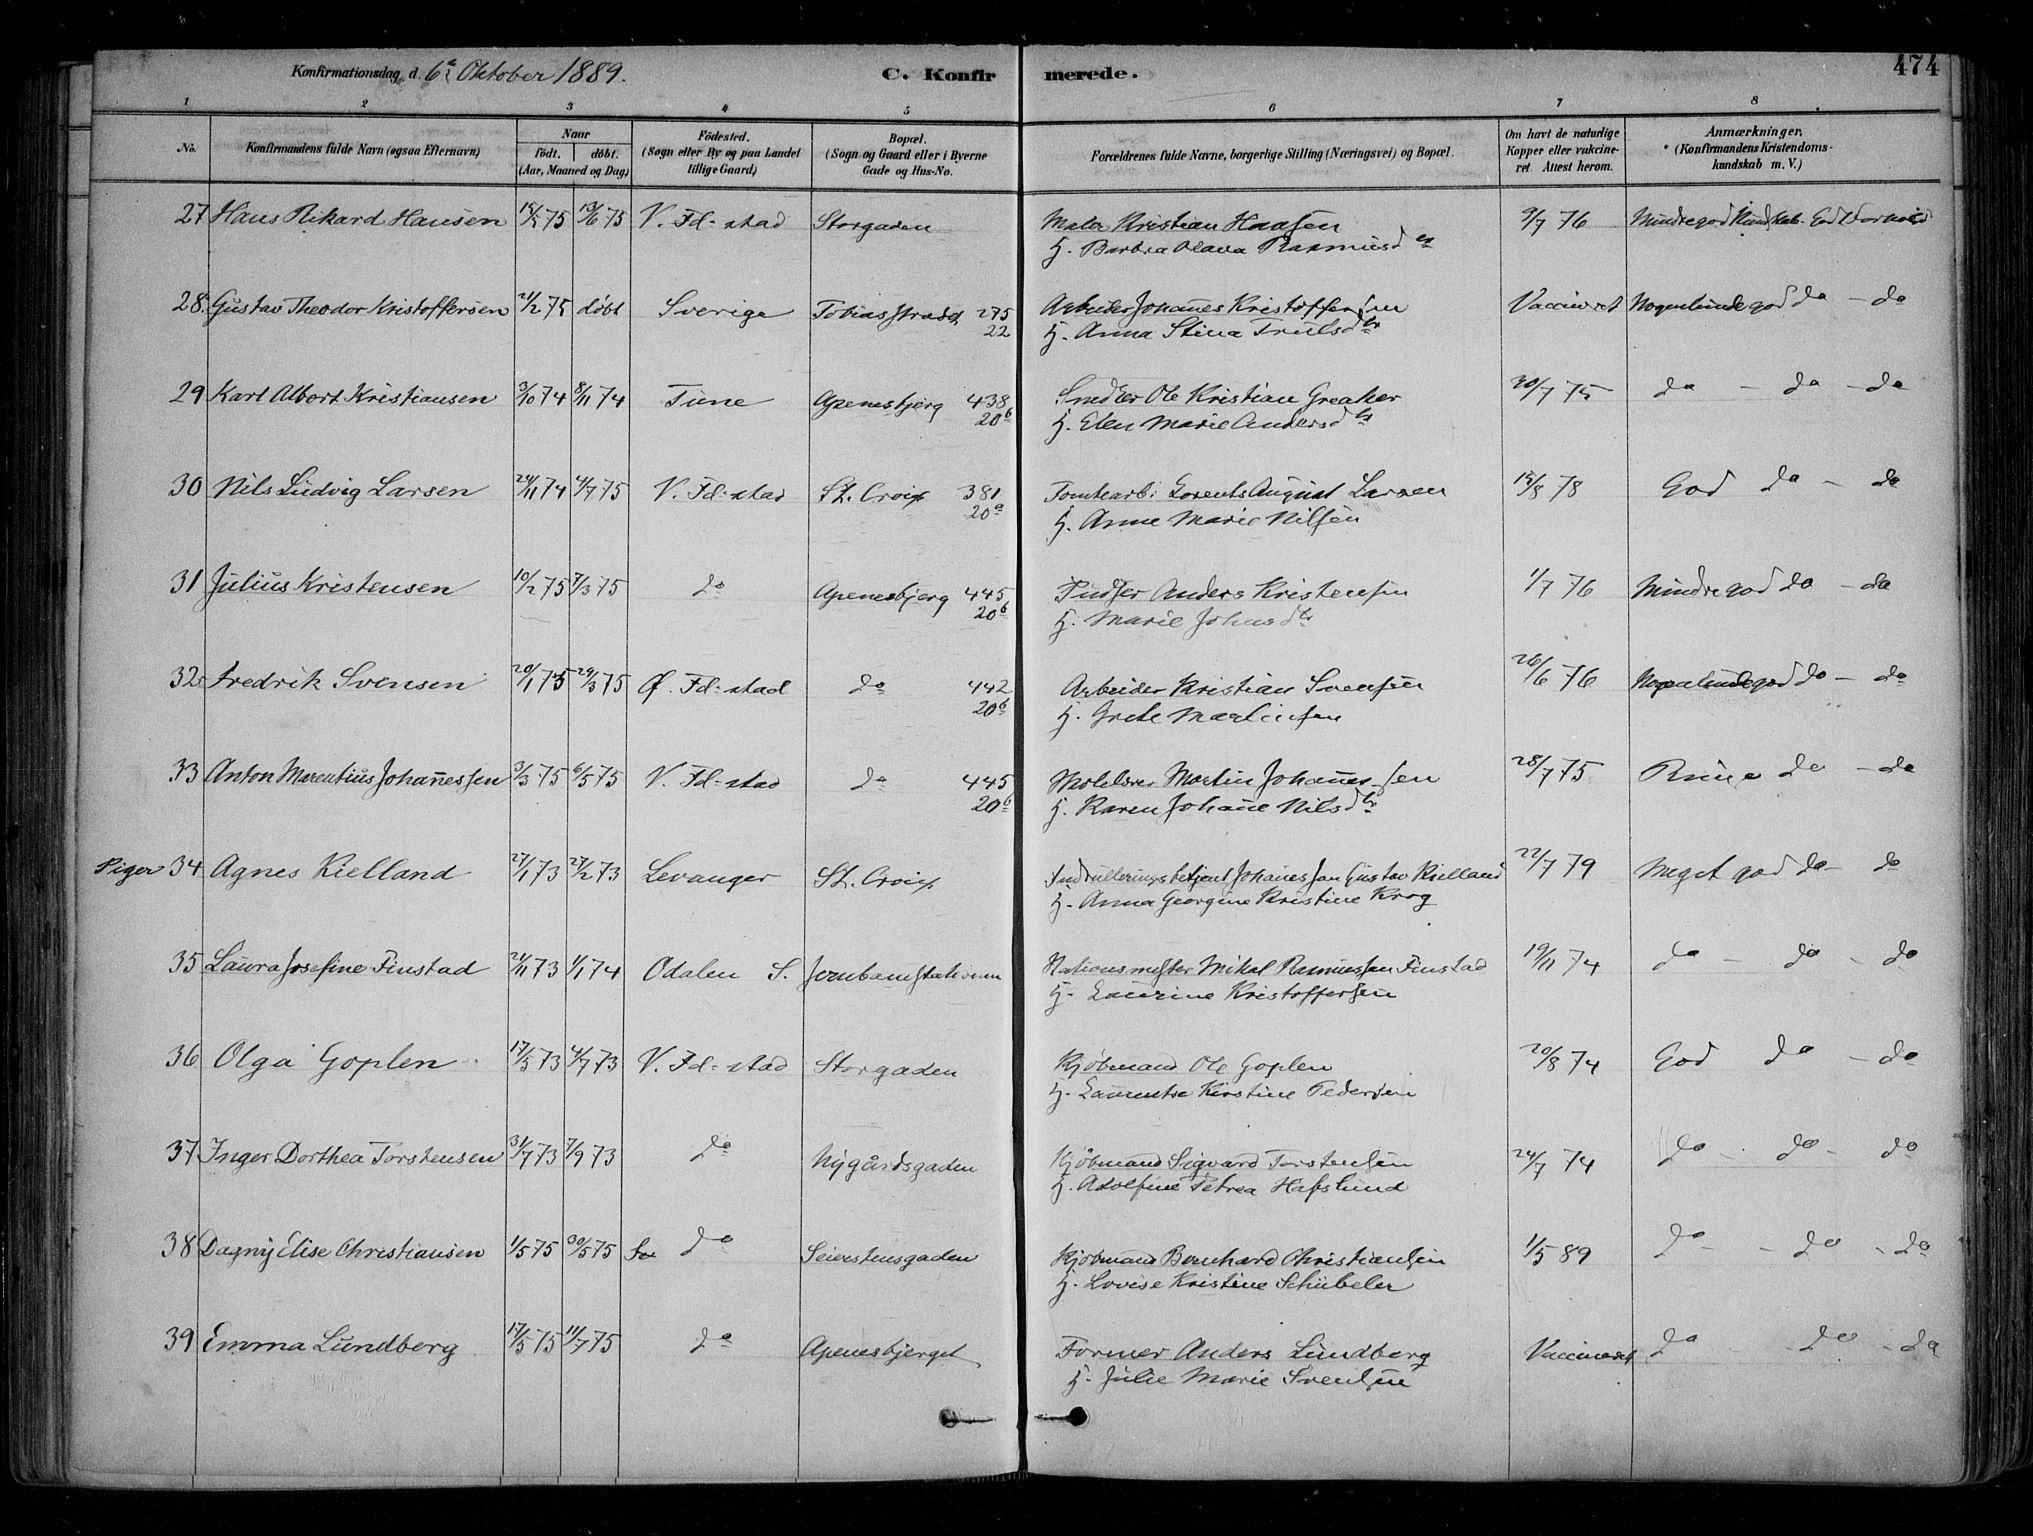 Konfirmationsdag d. 6te Oktober 1889. C. Konfirmerede. 474
1 2 3 4 5 6 7 8
No. Konfirmandens fulde Navn (ogsaa Efternavn) Naar født. døbt. (Aar, Maaned og Dag) Fødested. (Sogn eller By og paa Landet tillige Gaard) Bopæl. (Sogn og Gaard eller i Byerne Gade og Hus-No. Forældrenes fulde Navne, borgerlige Stilling (Næringsvei) og Bopæl. Om havt de naturlige Kopper eller vaccineret. Attest herom. Anmærkninger. (Konfirmandens Kristendomskundskab m. V.)
27 Hans Rikard Hansen 15/5 75 13/6 75 V. Fd-stad Storgaden Maler Kristian Hansen 9/7 76 Mindre god Kundskab. God Forhold
H. Barbra Olava Rasmusd er
28 Gustav Theodor Kristoffersen 21/2 75 døbt Sverige Tobiasstrædet 275 Arbeider Johanes Kristoffersen Vaccineret Nogenlunde god do - do
22 H. Anna Stina Trulsdtr
29 Karl Albert Kristiansen 3/10 74 8/11 74 Tune Apenesbjerg 438 Snedker Ole Kristian Greaker 30/7 75 do - do - do
20b H. Elen Marie Andersdtr
30 Nils Ludvig Larsen 24/11 74 4/7 75 V. Fd-stad St. Croix 381 Tomtearb. Lorents August Larsen 15/8 78 God do - do
20a H. Anne Marie Nilsen
31 Julius Kristensen 10/2 75 7/3 75 do Apenesbjerg 445 Pudser Anders Kristensen 1/7 76 Mindre god do - do
20b H. Marie Johnsdtr
32 Fredrik Svensen 20/1 75 29/3 75 Ø. Fd-stad do 442 Arbeider Kristian Svensen 26/6 76 Nogenlunde god do - do
20b H. Grete Martinsen
33 Anton Marentius Johanessen 3/3 75 6/5 75 V. Fd-stad do 445 Møller Martin Johanessen 28/7 75 do - do
20b H. Karen Johane Nilsdtr
Piger 34 Agnes Kielland 27/1 73 27/2 73 Levanger St. Croix Indrulleringsbetjent Johanes Jan Gustav Kielland 22/7 79 Meget god do - do
H. Anna Georgine Kristine Krog
35 Laura Josefine Finstad 21/11 73 1/1 74 Odalen S. Jernbanestationen Stationsmester Mikal Rasmussen Finstad 19/11 74 do - do - do
H. Laurine Kristoffersen
36 Olga Goplen 17/3 73 4/7 73 V. Fd-stad Storgaden Kjøbmand Ole Goplen 20/8 74 God do - do
H. Laurentse Kirstine Pedersen
37 Inger Dorthea Torstensen 31/7 73 7/9 73 do Nygårdsgaden Kjøbmand Sigvard Torstensen 24/7 74 do - do - do
H. Adolfine Petrea Hafslund
38 Dagny Elise Christiansen 1/5 75 30/5 75 do Seierstensgaden Kjøbmand Bernhard Christiansen 1/5 89 do - do - do
H. Lovise Kristine Schübeler
39 Emma Lundberg 17/5 75 11/7 75 do Apenesbjerget Former Anders Lundberg Vaccineret do do - do
H. Julie Marie Svensen